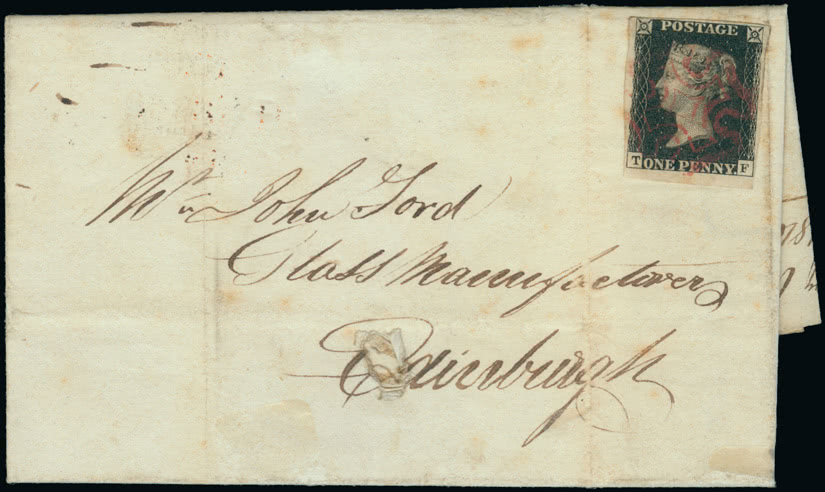 POSTAGE
T ONE PENNY F
Mr John Ford
Glass Manufacturer
Edinburgh